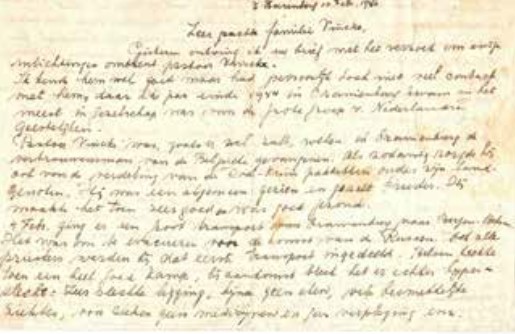 's Harenberg 10 Feb. 1946
Zeer geachte familie Vrücke,
Gisteren ontving ik uw brief met het verzoek om enige
inlichtingen omtrent pastoor Vrücke.
Ik kende hem wel goed maar had persoonlijk toch niet veel contact
met hem, daar ik pas einde 1944 in Oranienburg kwam en het
meest in gezelschap was van de grote groep v. Nederlandse
Geestelijken.
Pastoor Vrücke was, zoals u wel zult weten, in Oranienburg de
vertrouwensman van de Belgische gevangenen. Als zodanig zorgde hij
ook voor de verdeling van de Rode-Kruis pakketten onder zijn land-
genoten. Hij was een algemeen gezien en geacht priester. Hij
maakte het toen zeer goed en was goed gezond.
4 Febr. ging er een groot transport van Oranienburg naar Bergen-Belsen
Het was om te evacueren voor de komst van de Russen. Ook alle
priesters werden bij dat eerste transport ingedeeld. Belsen heette
toen een heel goed kamp, bij aankomst bleek het er echter
slecht. Zeer slechte ligging, bijna geen eten, vele besmettelijke
ziekten, voor zieken geen medicijnen en geen verpleging enz.